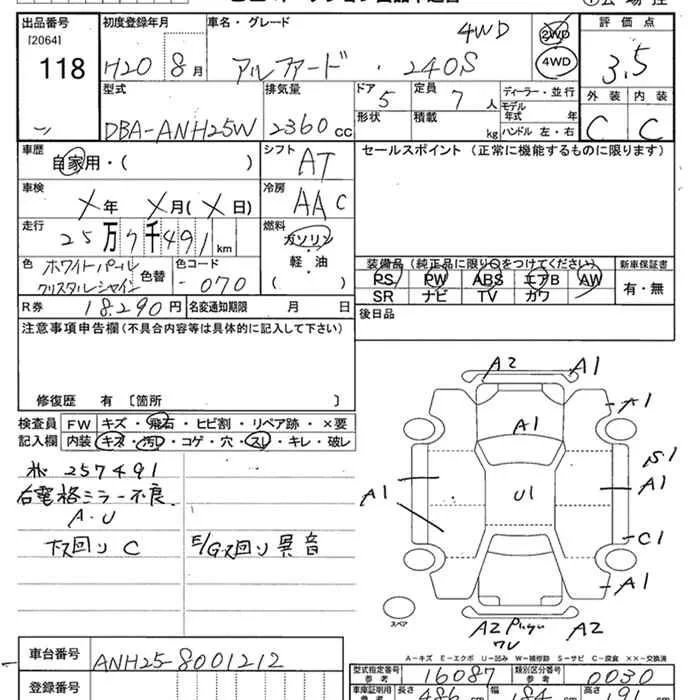 出品番号 初度登録年月 車名・グレード 4WD 2WD 評価点
[2064]
118 H20 8月 アルファード・240S 4WD 3.5
型式 排気量 ドア 5 定員 7人 ディーラー・並行 外装 内装
モデル年式 年
DBA-ANH25W 2360cc 形状 積載 kg ハンドル 左・右 C C
車歴 自家用・( ) シフト AT セールスポイント (正常に機能するものに限ります)
車検 X年 X月(X日) 冷房 AAC
走行 25万7千491km 燃料 ガソリン・軽油( )
装備品(純正品に限り○をつけてください) 新車保証書
色 ホワイトパールクリスタルシャイン 色替 色コード -070
PS PW ABS エアB AW 有・無
SR ナビ TV カワ
R券 18,290円 名変通知期限 月 日 後日品
注意事項申告欄 (不具合内容等は具体的に記入して下さい)
修復歴 有 〔箇所 〕
検査員 FW キズ・飛石・ヒビ割・リペア跡・×要
記入欄 内装 キズ・汚レ・コゲ・穴・スレ・キレ・破レ
257491
右電格ミラー不良
A・U
下ス回リ C E/Gス回リ 異音
A2 A1
A1
A1
S1
A1
A1
U1
C1
A1
A2 A2
スペア
A-キズ E-エクボ U-凹み W-補修跡 S-サビ C-腐食 ××-交換済
車台番号 ANH25-8001212
型式指定番号 参考 16087 類別区分番号 参考 0030
登録番号 車庫証明用 参考 長さ 486cm 幅 184cm 高さ 191cm